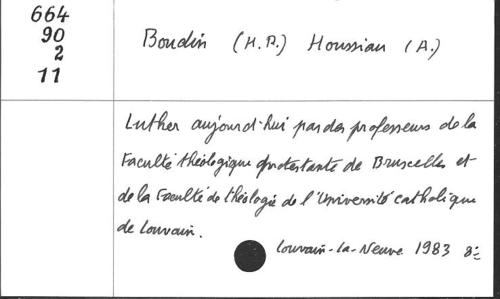 664
90
2
11
Boudin (H.R.) Houssiau (A.)
Luther aujourd'hui par des professeurs de la
Faculté théologique protestante de Bruxelles et
de la Faculté de théologie de l'Université catholique
de Louvain.
Louvain-la-Neuve 1983 8º